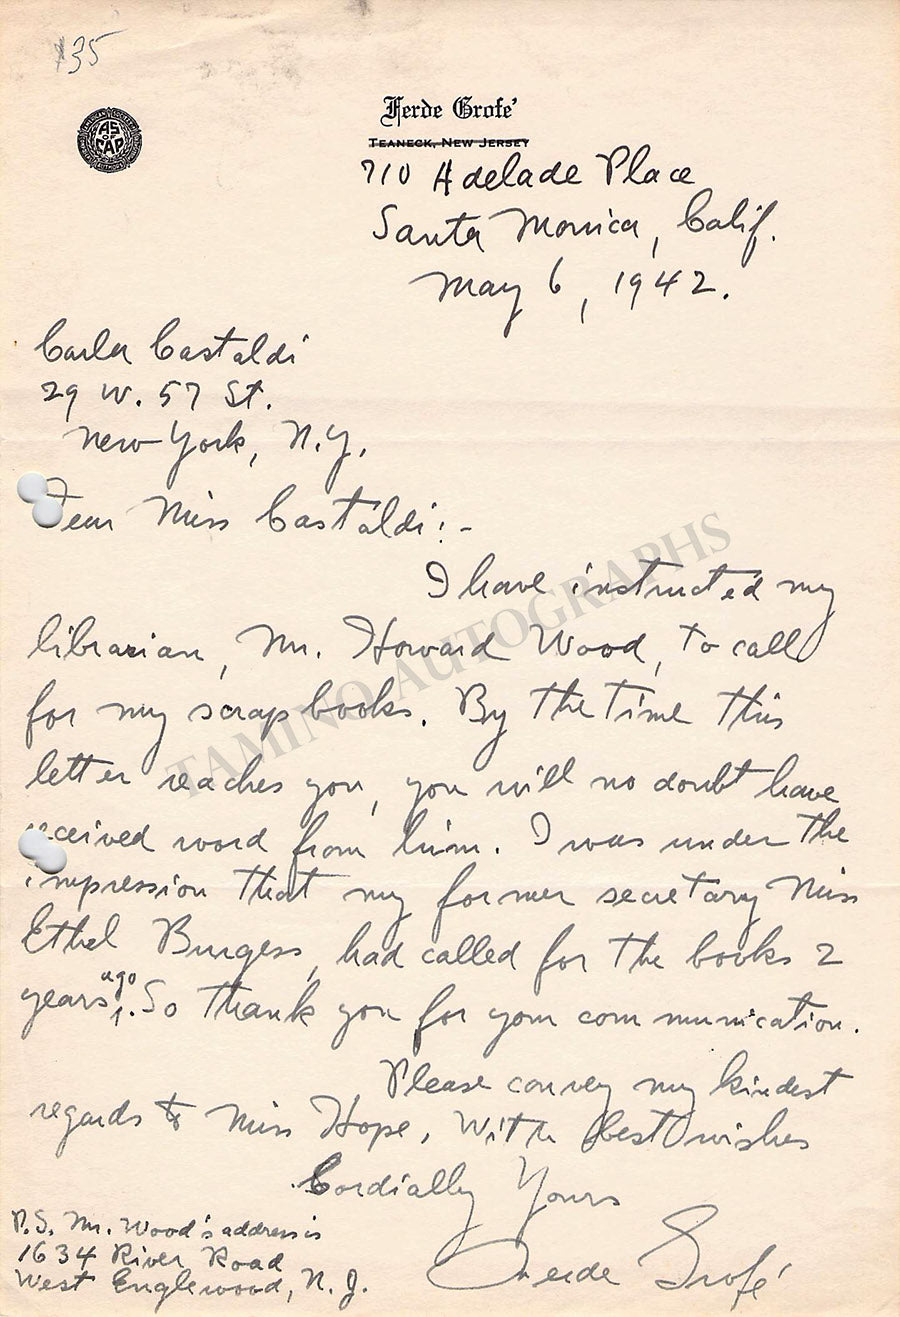 135
Ferde Grofé
AS
OF
CAP
TEANECK, NEW JERSEY
710 Adelade Place
Santa Monica, Calif.
May 6, 1942.
Carla Castaldi
29 W. 57 St.
New York, N.Y.
Dear Miss Castaldi:-
I have instructed my
librarian, Mr. Howard Wood, to call
for my scrap books. By the time this
letter reaches you, you will no doubt have
received word from him. I was under the
impression that my former secretary Miss
Ethel Burgess, had called for the books 2
years ago. So thank you for your communication.
Please convey my kindest
regards to Miss Hope. With best wishes
Cordially Yours
Ferde Grofé
P.S. Mr. Wood's address is
1634 River Road
West Englewood, N.J.
TAMINO AUTOGRAPHS